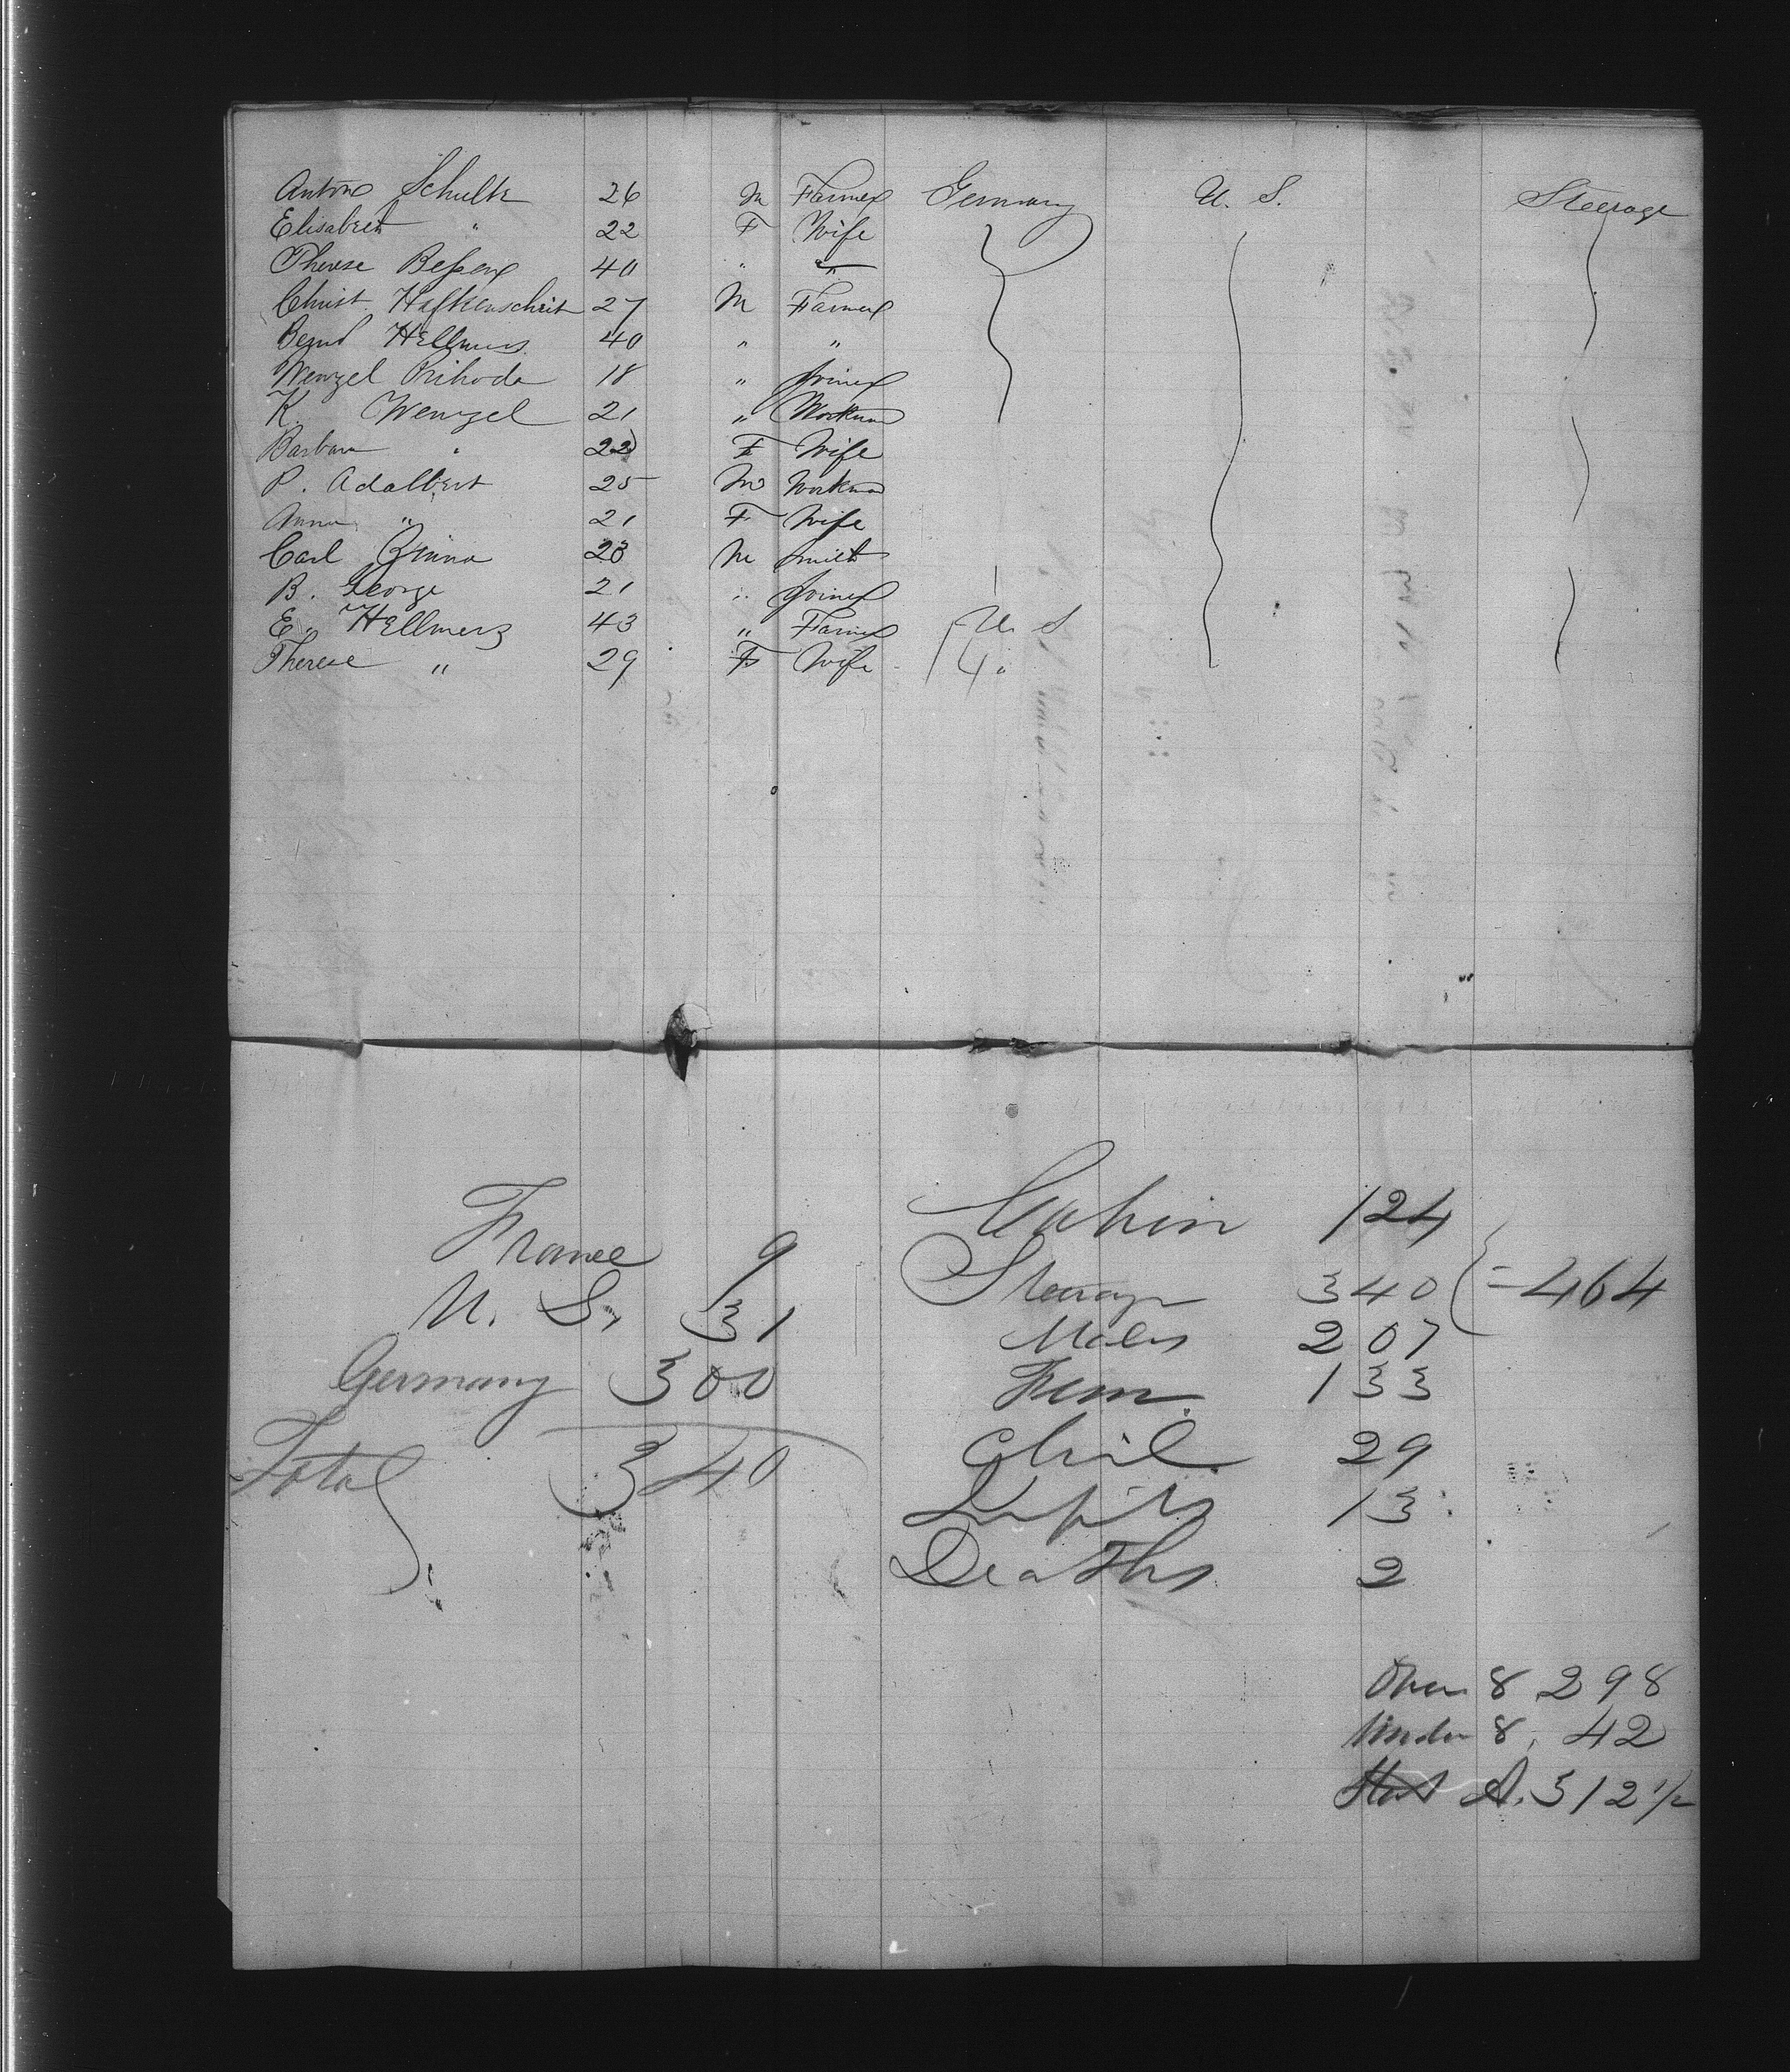 Anton Schulte 26 M Farmer Germany U. S. Steerage
Elisabeth " 22 F Wife
Therese Besser 40 " "
Christ. 27 M Farmer
Bernd Hellmers 40 " "
Wenzel Prihoda 18 " Joiner
K. Wenzel 21 " Workman
Barbara " 22 F Wife
P. Adalbert 25 M Workman
Anna " 21 F Wife
Carl 23 M Smith
B. George 21 " Joiner
E. Hellmers 43 " Farmer U. S
Therese " 29 F Wife
France 9
U. S. 31
Germany 300
Total 340
Cabin 124
Steerage 340 = 464
Males 207
Fem. 133
Chil. 29
Infts 13
Deaths 2
Over 8 298
Under 8. 42
A. 312 1/2